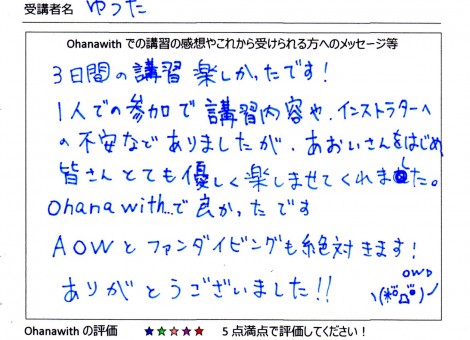 受講者名 ゆうた
Ohanawith での講習の感想やこれから受けられる方へのメッセージ等
3日間の講習 楽しかったです!
1人での参加で講習内容や、インストラターへ
の不安などありましたが、あおいさんをはじめ
皆さんとても優しく楽しませてくれました。
Ohana with..で良かったです
AOWとファンダイビングも絶対きます!
ありがとうございました!!
Ohanawith の評価 ★★★★★ 5 点満点で評価してください!